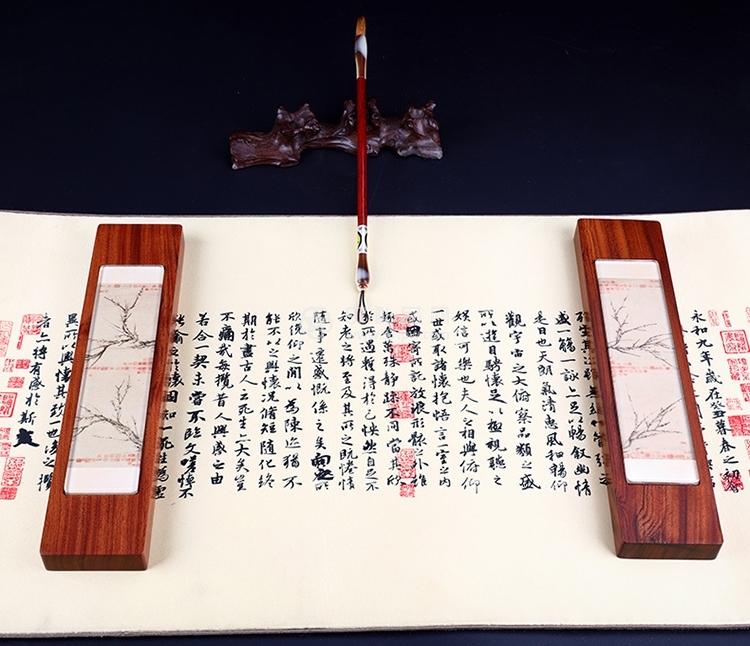 永和九年歲在癸丑暮春之初會
盛一觴一詠亦足以暢敘幽情
是日也天朗氣清惠風和暢仰
觀宇宙之大俯察品類之盛
所以遊目騁懷足以極視聽之
娛信可樂也夫人之相與俯仰
一世或取諸懷抱悟言一室之內
或因寄所託放浪形骸之外雖
趣舍萬殊靜躁不同當其欣
於所遇暫得於己怏然自足不
知老之將至及其所之既惓情
隨事遷感慨係之矣向之所
欣俛仰之間以為陳迹猶不
能不以之興懷況脩短隨化終
期於盡古人云死生亦大矣豈
不痛哉每攬昔人興感之由
若合一契未嘗不臨文嗟悼不
能喻之於懷固知一死生為虛
異所以興懷其致一也後之攬
者亦將有感於斯文